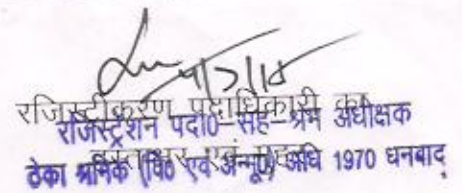 4/7/18
रजिस्ट्रीकरण पदाधिकारी का
रजिस्ट्रेशन पदा0-सह-श्रम अधीक्षक
हस्ताक्षर एवं मुहर
ठेका श्रमिक (वि0 एवं उन्मू0) अधि 1970 धनबाद